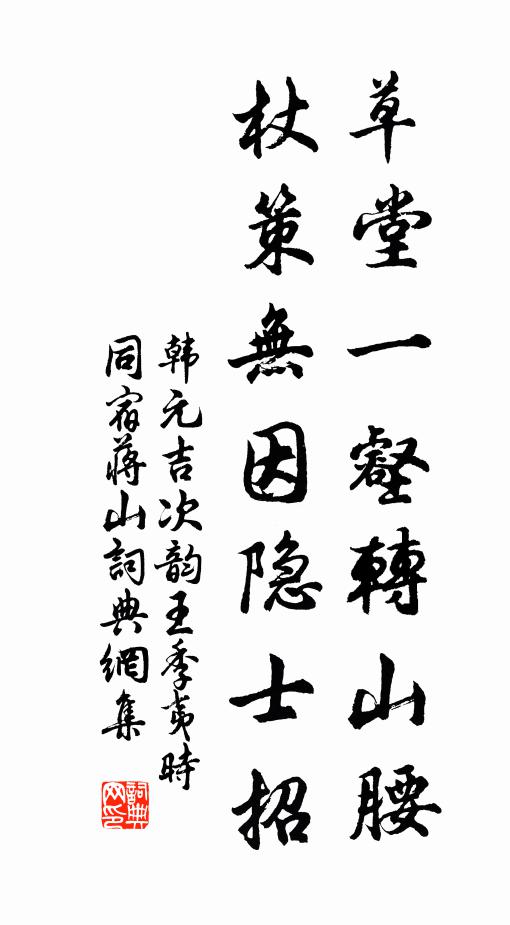 草堂一壑轉山腰
杖策無因隐士招
韩元吉次韵王季夷時
同宿蔣山詞典網集
詞典网印